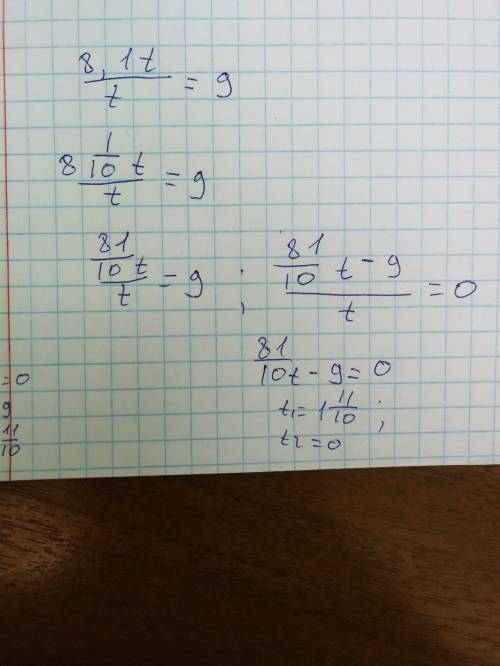 8,1t/t = 9
8 1/10 t/t = 9
81/10 t/t = 9 ; 81/10 t - 9/t = 0
81/10t - 9 = 0
t1 = 1 11/10 ;
t2 = 0
=0
9
11/10